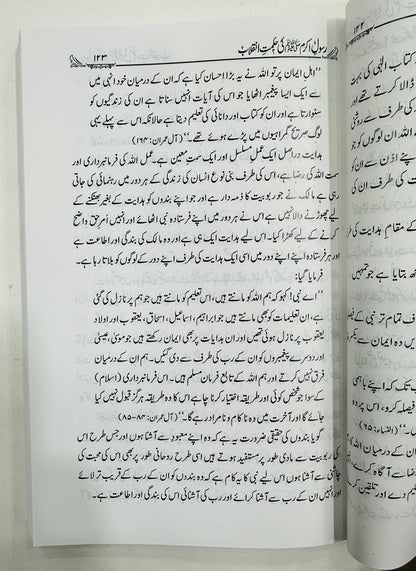 رسولِ اکرم ﷺ کی حکمتِ انقلاب
۱۲۳
"اہلِ ایمان پر تو اللہ نے یہ بڑا احسان کیا ہے کہ ان کے درمیان خود انہی میں
سے ایک ایسا پیغمبر اٹھایا جو اس کی آیات انہیں سناتا ہے ان کی زندگیوں کو
سنوارتا ہے اور ان کو کتاب اور دانائی کی تعلیم دیتا ہے حالانکہ اس سے پہلے یہی
لوگ صریح گمراہیوں میں پڑے ہوئے تھے۔" (آل عمران: ۱۶۴)
ہدایت دراصل ایک عملِ مسلسل اور ایک سمتِ معین ہے۔ عمل اللہ کی فرمانبرداری اور
سمت اللہ کی رضا ہے، اس کی طرف بنی نوع انسان کی زندگی کے ہر دور میں رہنمائی کی جاتی
رہی ہے مالک نے جو ربوبیت کا ذمہ دار ہے اور جو اپنے بندوں کو ہدایت کے بغیر بھٹکنے کے
لیے چھوڑنے والا نہیں ہے اس نے ہر دور میں اپنے فرستادہ نبی اٹھائے اور انہیں امرِ حق واضح
کرنے کے لیے کھڑا کیا۔ اس لیے ہدایت ایک ہی ہے اور وہ مالک کی بندگی اور اطاعت ہے
اور ہر فرستادہ اپنے اپنے دور میں اسی ہدایت کی طرف اپنے دور کے لوگوں کو بلاتا رہا ہے۔
فرمایا گیا:
"اے نبی! کہو کہ ہم اللہ کو مانتے ہیں، اس تعلیم کو مانتے ہیں جو ہم پر نازل کی گئی
ہے، ان تعلیمات کو بھی مانتے ہیں جو ابراہیم، اسماعیل، اسحاق، یعقوب اور اولاد
یعقوب پر نازل ہوئی تھیں اور ان ہدایات پر بھی ایمان رکھتے ہیں جو موسیٰ، عیسیٰ
اور دوسرے پیغمبروں کو ان کے رب کی طرف سے دی گئیں۔ ہم ان کے درمیان
فرق نہیں کرتے اور ہم اللہ کے تابع فرمان مسلم ہیں۔ اس فرمانبرداری (اسلام)
کے سوا جو شخص کوئی اور طریقہ اختیار کرنا چاہے اس کا وہ طریقہ ہرگز قبول نہیں کیا
جائے گا اور آخرت میں وہ ناکام و نامراد رہے گا۔" (آل عمران: ۸۴-۸۵)
گویا بندوں کی حقیقی ضرورت یہ ہے کہ وہ اپنے معبود سے آشنا ہوں اور جس طرح اس
کی ربوبیت سے مادی طور پر مستفید ہوتے ہیں اسی طرح روحانی طور پر بھی اس کی محبت کی
چاشنی سے آشنا ہوں اس لیے نبی کا یہ کام ہے کہ وہ بندوں کو ان کے رب کے قریب تر لائے
اور انہیں ان کے رب سے آشنا کرائے اور رب کی آشنائی اس کی بندگی اور اطاعت ہے۔